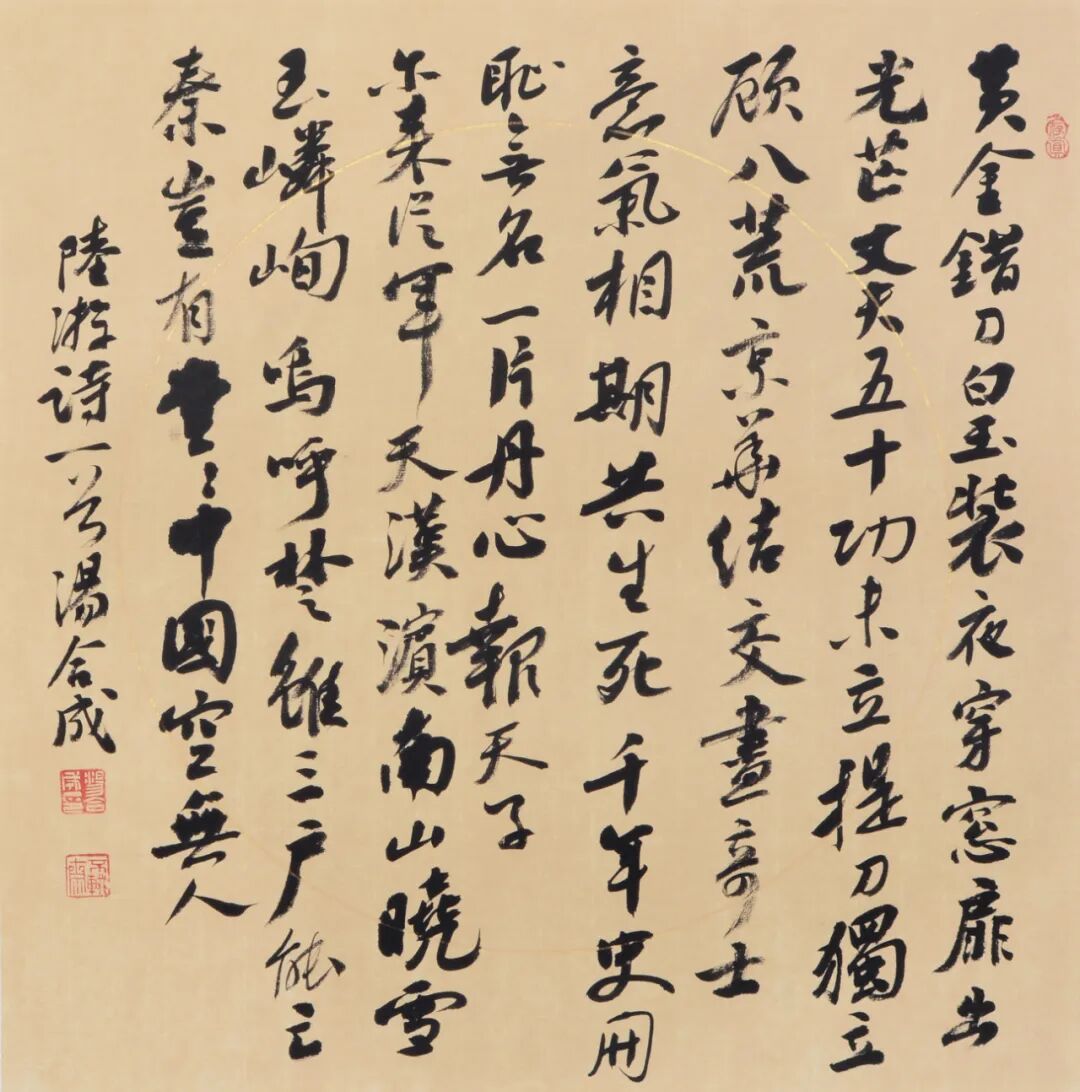 黄金錯刀白玉装夜穿窓扉出
光芒丈夫五十功未立提刀獨立
顧八荒京華结交盡奇士
意氣相期共生死千年史册
耻無名一片丹心報天子
尔来從軍天漢濱南山曉雪
玉嶙峋嗚呼楚雖三户能亡
秦豈有堂〻中國空無人
陸游詩一首湯合成